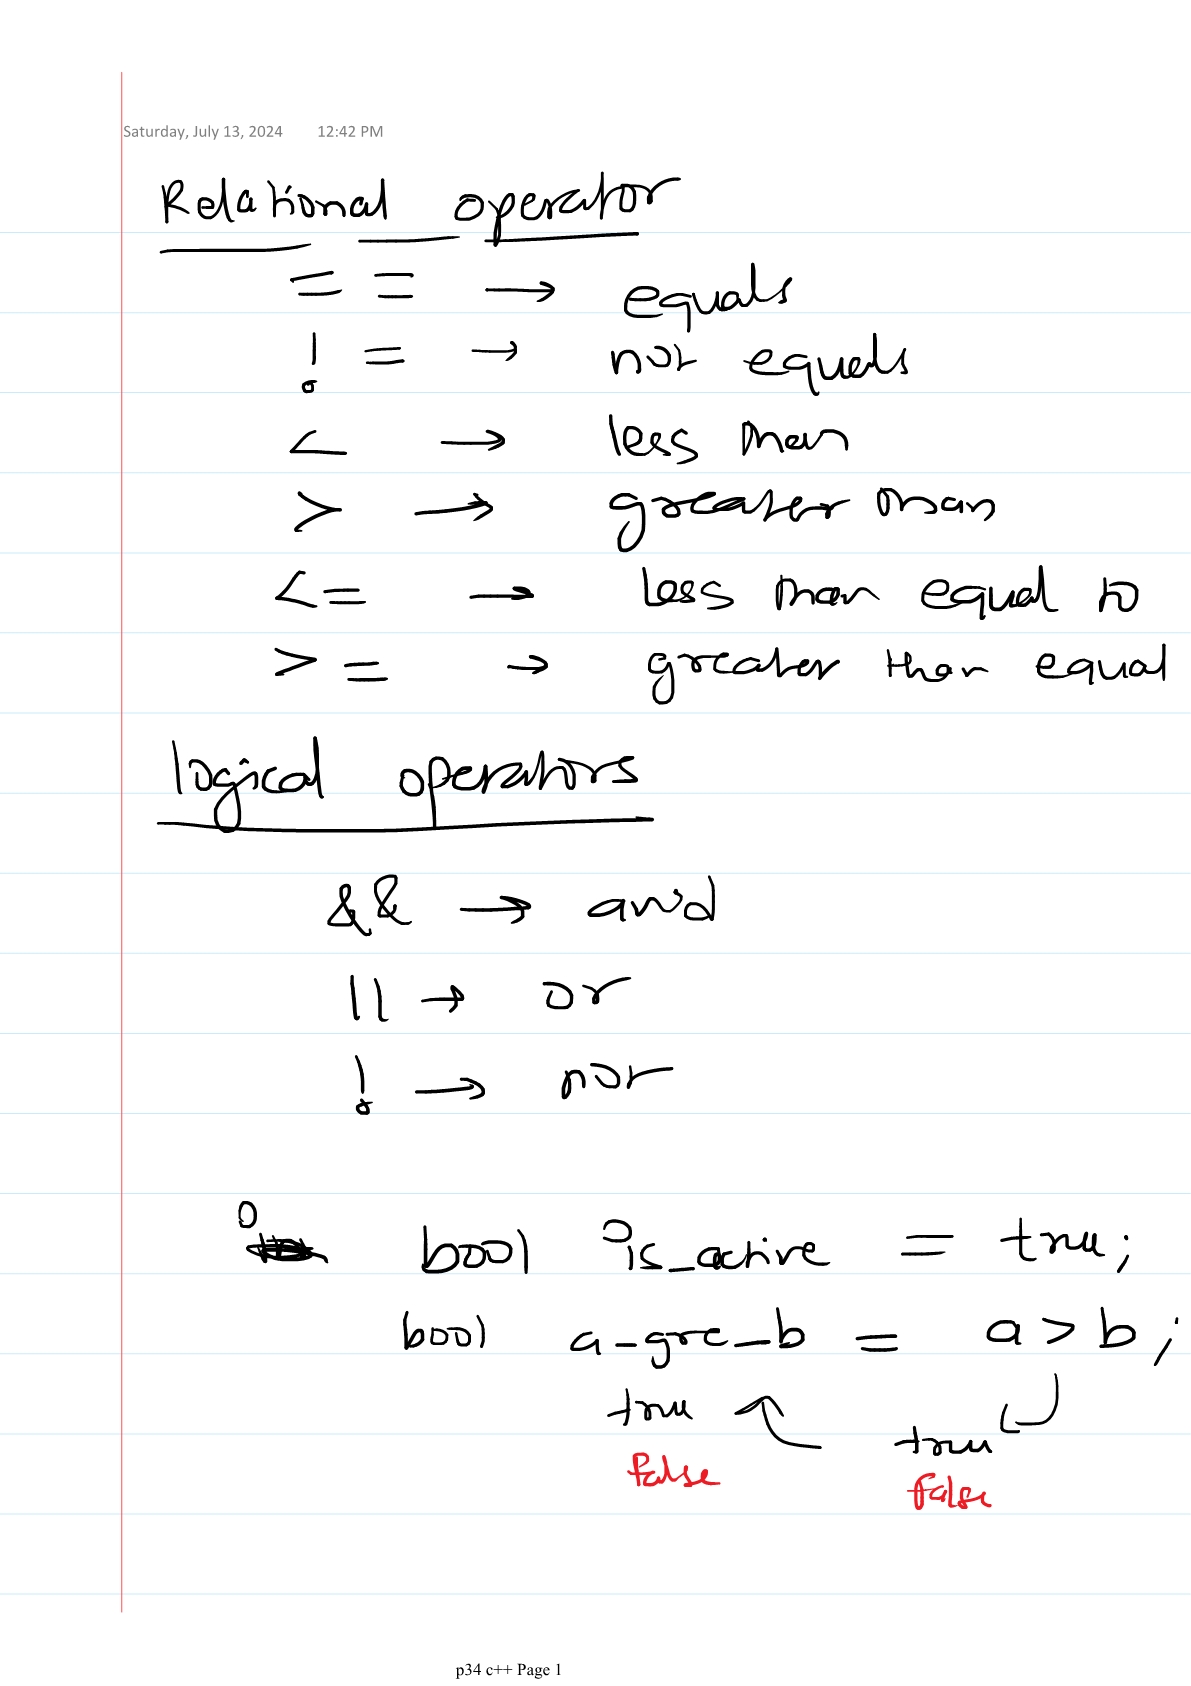 Saturday, July 13, 2024 12:42 PM
Relational operator
== → equals
!= → not equals
< → less than
> → greater than
<= → less than equal to
>= → greater than equal
logical operators
&& → and
|| → or
! → not
bool is_active = true;
bool a_gre_b = a > b;
true
true
false
false
p34 c++ Page 1